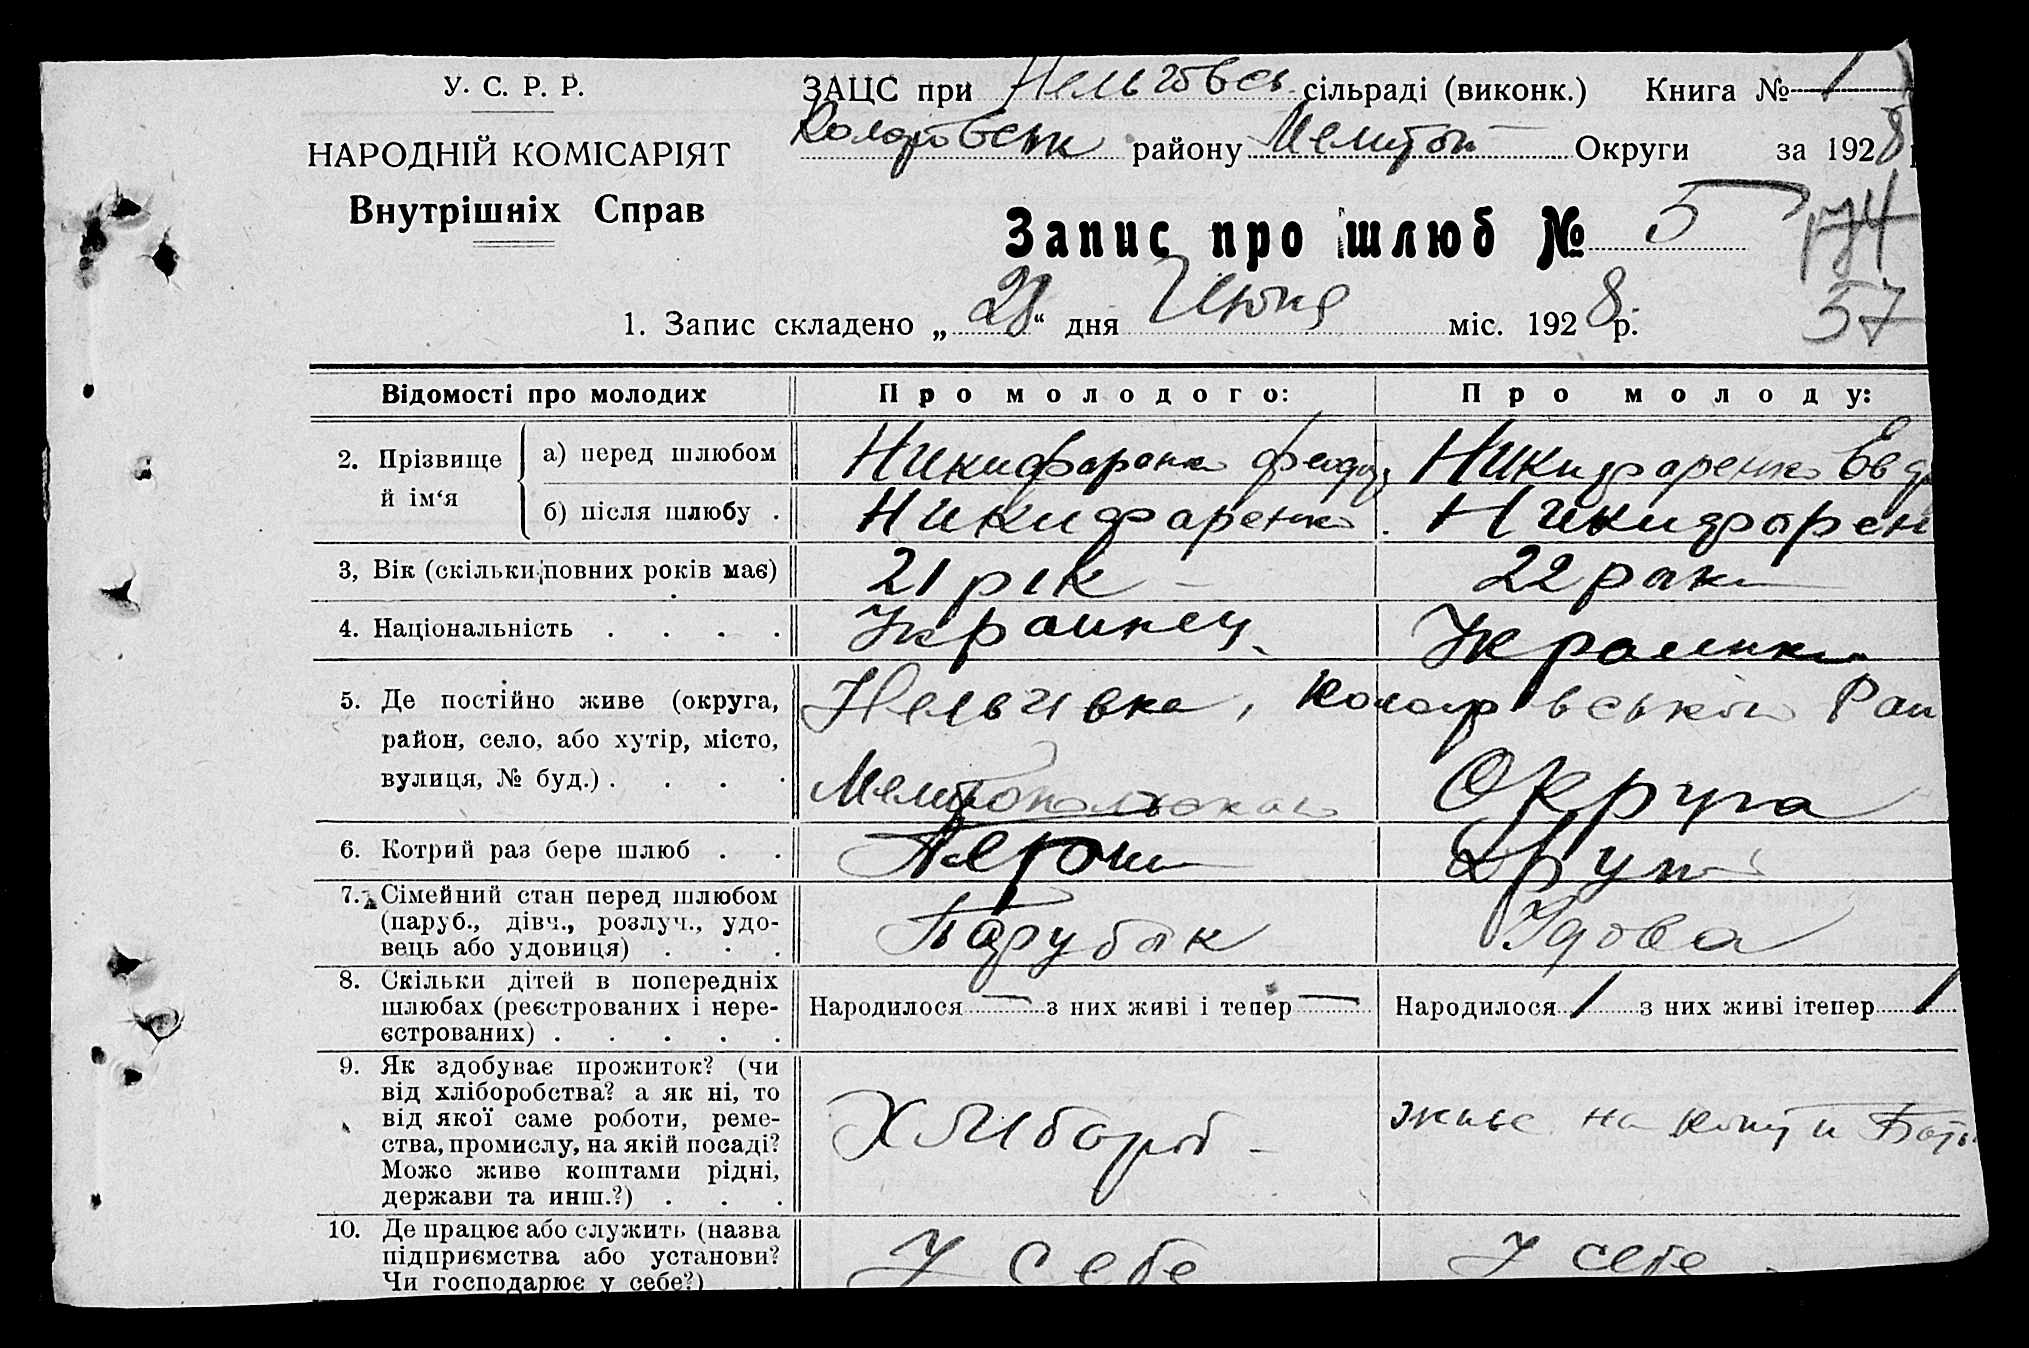 У. С. Р. Р.
НАРОДНІЙ КОМІСАРІЯТ
Внутрішніх Справ
ЗАЦС при Нельговсь. сільраді (виконк.) Книга № 1
району Мелитоп Округи за 1928
Запис про шлюб № 5
174
57
1. Запис складено „28“ дня Июня міс. 1928 р.
Відомості про молодих Про молодого: Про молоду:
2. Прізвище й ім‘я
а) перед шлюбом Никифаренко Феодос Никифаренко Евд
б) після шлюбу . Никифаренко. Никифорен
3, Вік (скільки повних років має) 21 рік 22 роки
4. Національність . . . . Украинец. Украинка
5. Де постійно живе (округа, район, село, або хутір, місто, вулиця, № буд.) . . . .
Нельгивка, Колар вського Рай
Мелитопольского Округа
6. Котрий раз бере шлюб . . Перший Другий
7. Сімейний стан перед шлюбом (паруб., дівч., розлуч., удовець або удовиця) . . . Парубок Удова
8. Скільки дітей в попередніх шлюбах (реєстрованих і нереєстрованих) . . . . .
Народилося — з них живі і тепер — Народилося 1 з них живі ітепер 1
9. Як здобуває прожиток? (чи від хліборобства? а як ні, то від якої саме роботи, ремества, промислу, на якій посаді? Може живе коштами рідні, держави та инш.?) . . .
Хлибороб живе на кошти Бать
10. Де працює або служить (назва підприємства або установи? Чи господарює у себе?) . У себе У себе